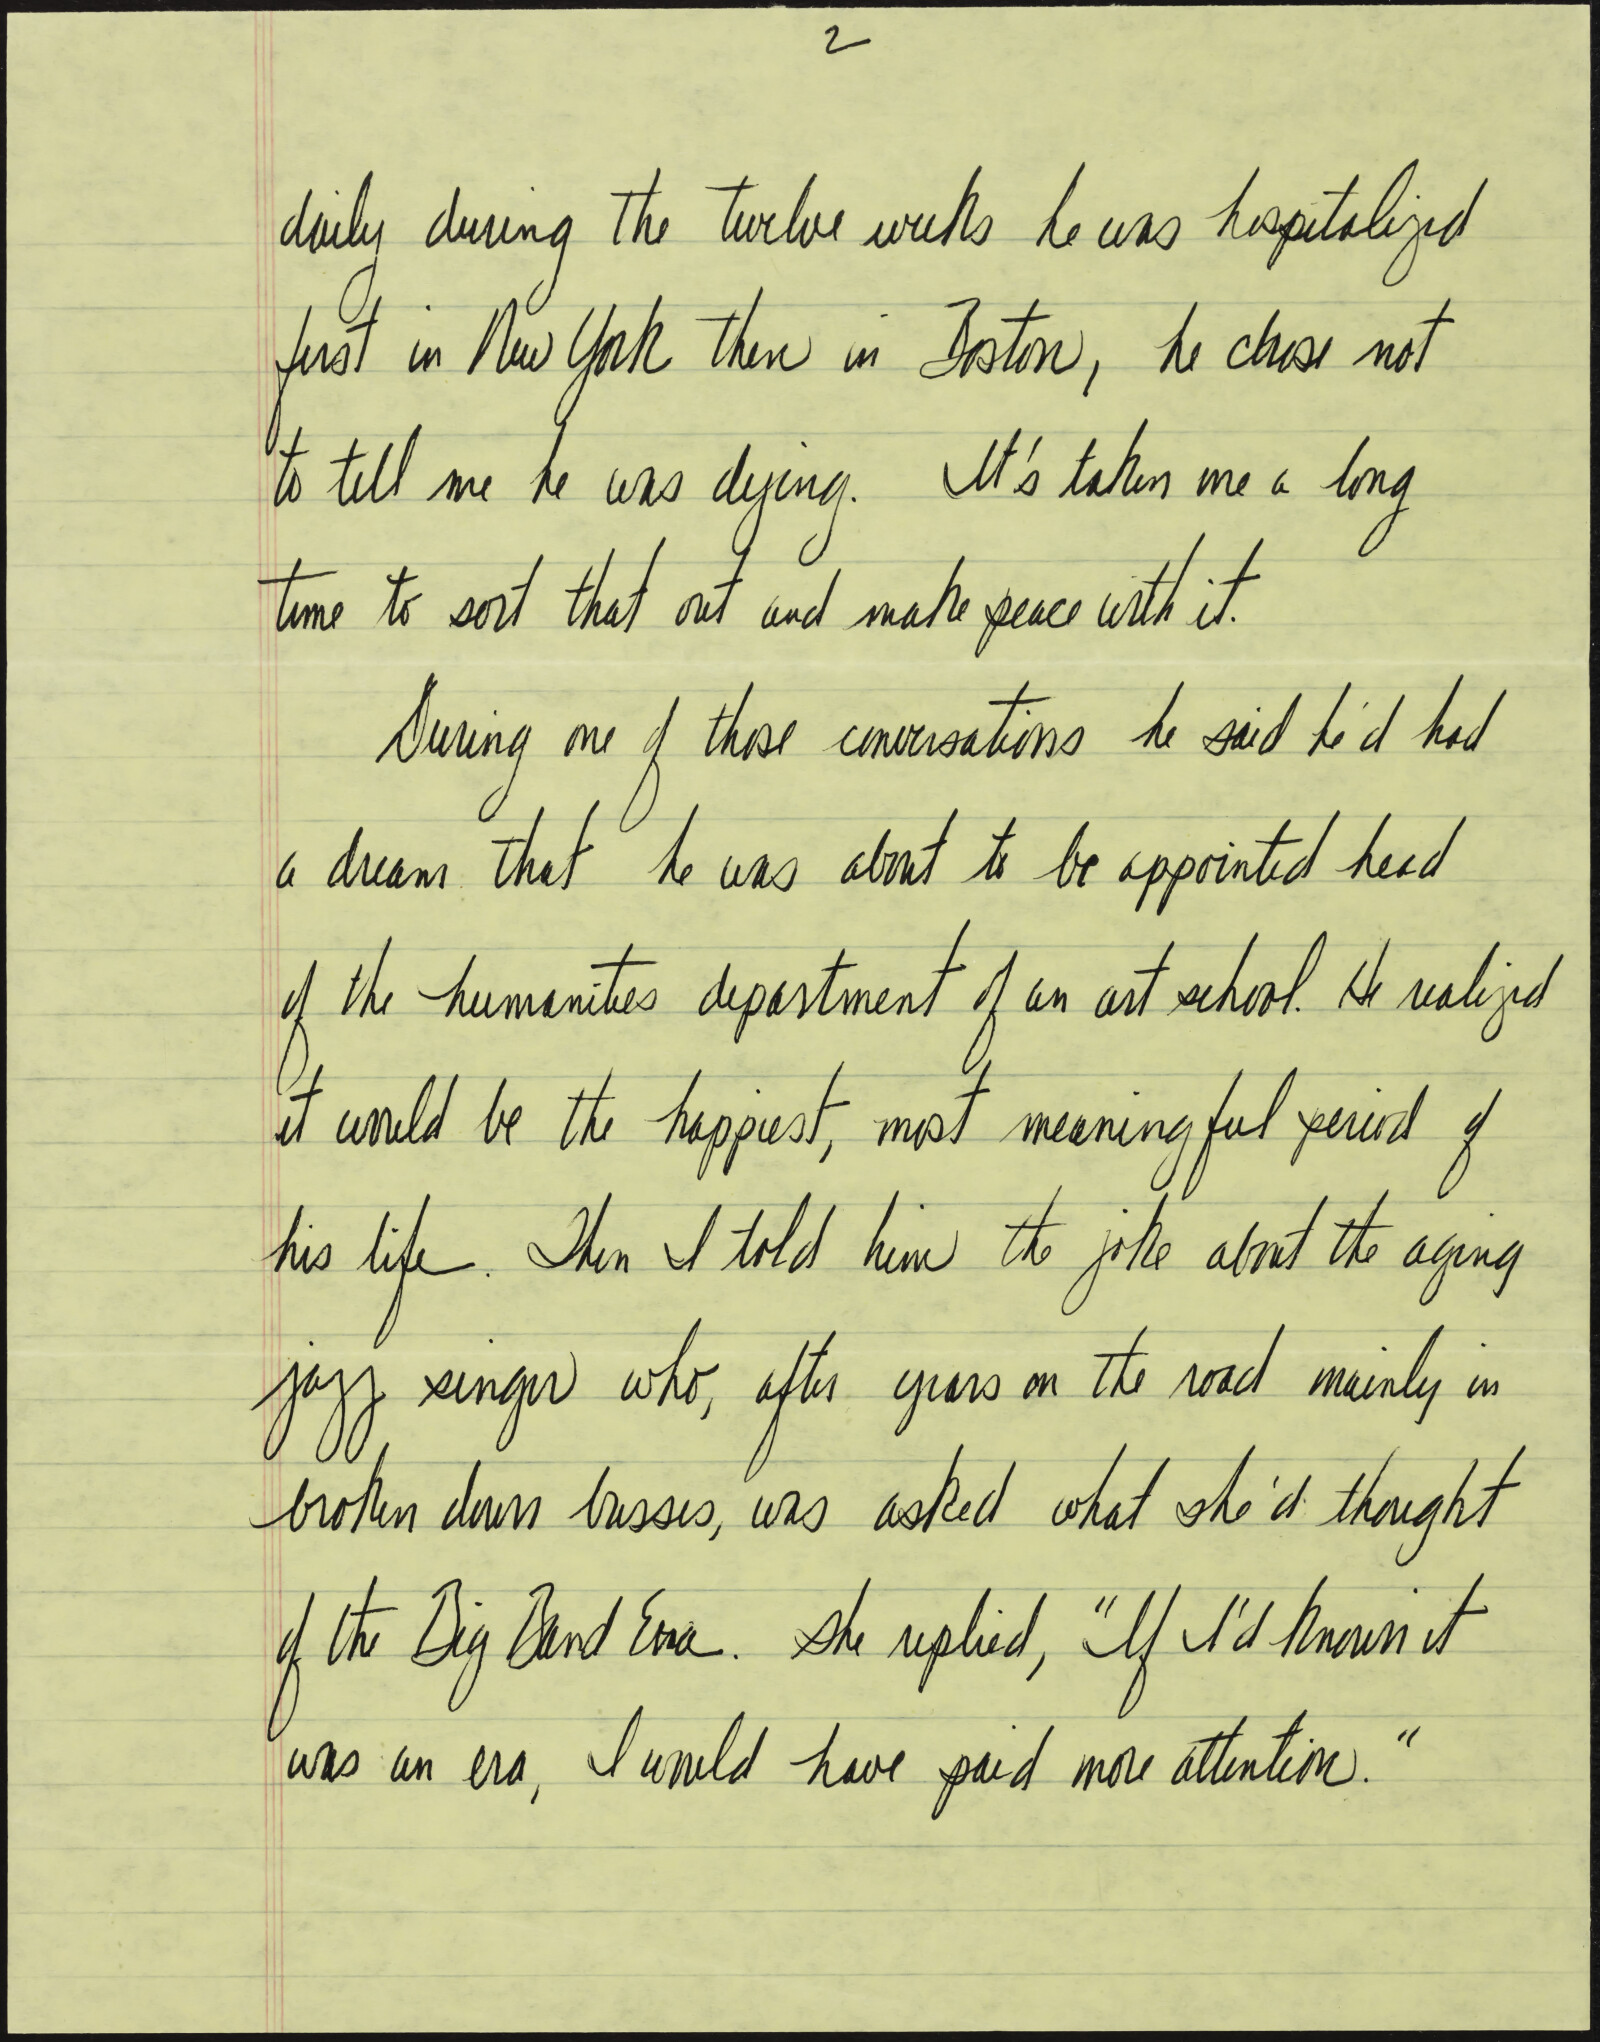 2
daily during the twelve weeks he was hospitalized
first in New York then in Boston, he chose not
to tell me he was dying. It's taken me a long
time to sort that out and make peace with it.
During one of those conversations he said he'd had
a dream that he was about to be appointed head
of the humanities department of an art school. He realized
it would be the happiest, most meaningful period of
his life. Then I told him the joke about the aging
jazz singer who, after years on the road mainly in
broken down busses, was asked what she'd thought
of the Big Band Era. She replied, "If I'd known it
was an era, I would have paid more attention."